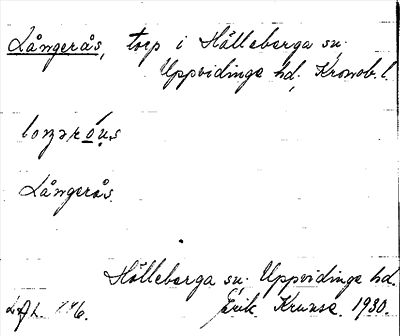 Långerås, torp i Hälleberga sn;
Uppvidinge hd, Kronob. l.
Långerås.
Hälleberga sn; Uppvidinge hd.
Erik 1930.